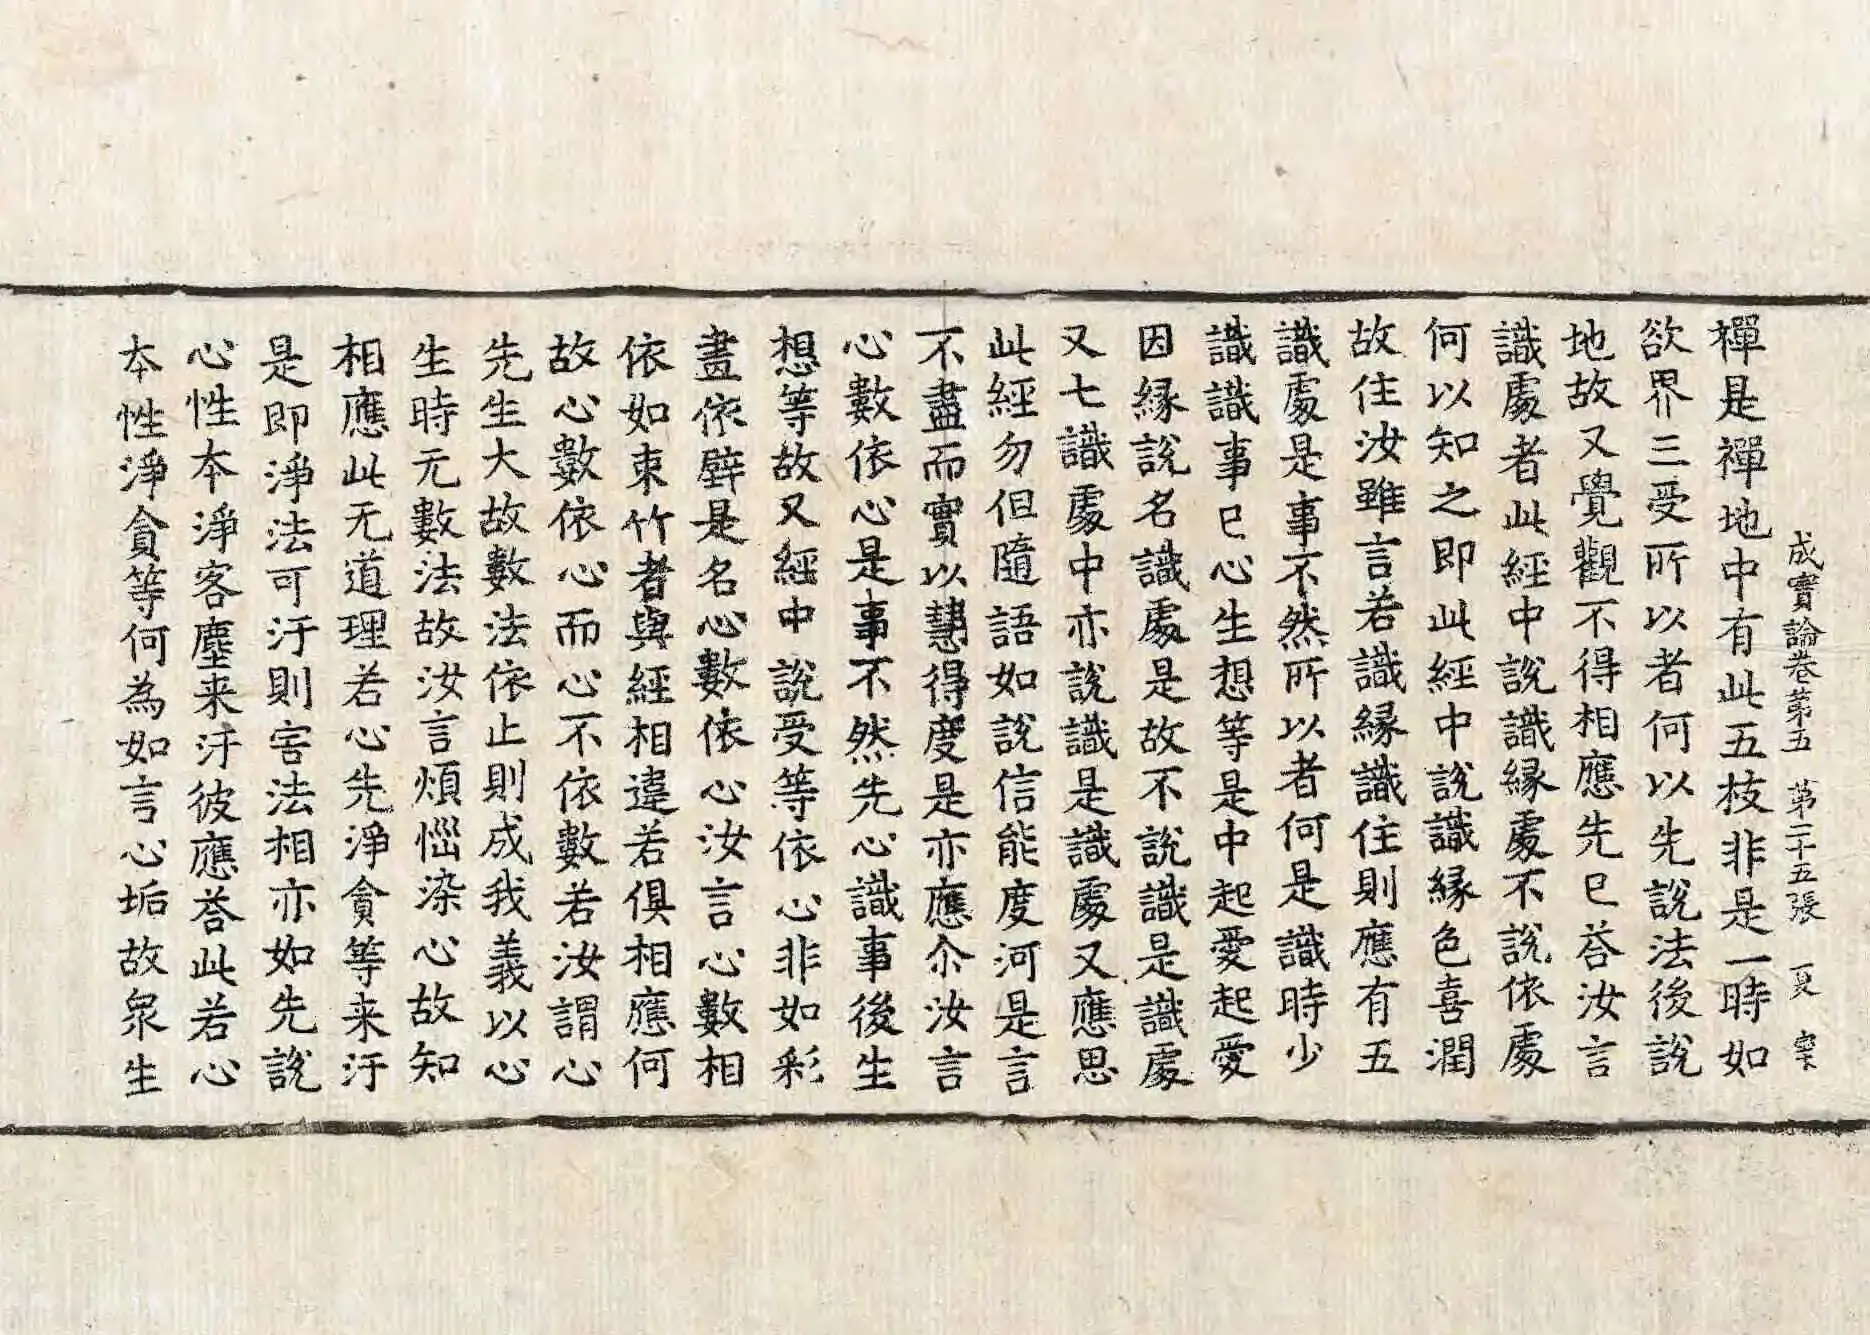 成實論卷第五 第二十五張 夏 寀
禪是禪地中有此五枝非是一時如
欲界三受所以者何以先說法後說
地故又覺觀不得相應先已荅汝言
識處者此經中說識緣處不說依處
何以知之即此經中說識緣色喜潤
故住汝雖言若識緣識住則應有五
識處是事不然所以者何是識時少
識識事已心生想等是中起愛起愛
因緣說名識處是故不說識是識處
又七識處中亦說識是識處又應思
此經勿但隨語如說信能度河是言
不盡而實以慧得度是亦應尒汝言
心數依心是事不然先心識事後生
想等故又經中說受等依心非如彩
畫依壁是名心數依心汝言心數相
依如束竹者與經相違若俱相應何
故心數依心而心不依數若汝謂心
先生大故數法依止則成我義以心
生時无數法故汝言煩惱染心故知
相應此无道理若心先淨貪等来汙
是即淨法可汙則害法相亦如先說
心性本淨客塵来汙彼應荅此若心
本性淨貪等何為如言心垢故衆生